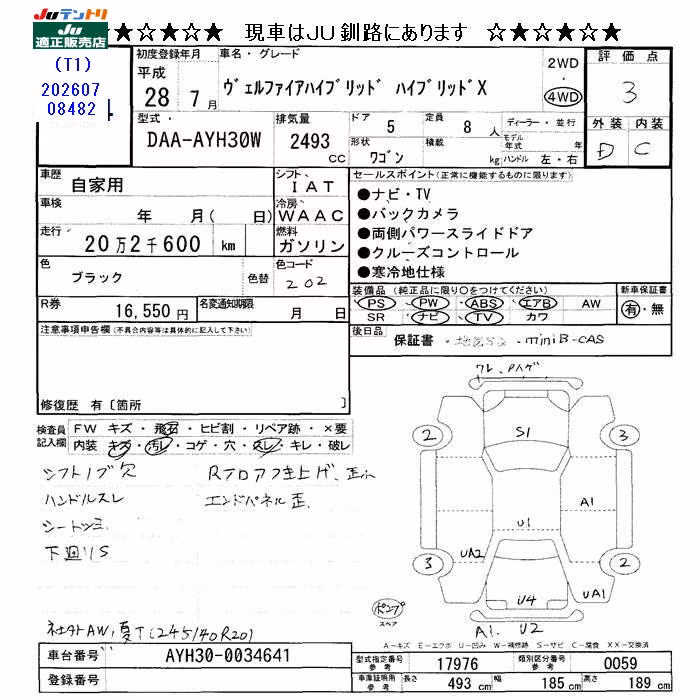 Juテントリ
JU
適正販売店
★☆★☆★☆ 現車はJU釧路にあります ☆★☆★☆★
(T1)
202607
08482
初度登録年月
平成
28年 7月
車名・グレード
ヴェルファイアハイブリッド ハイブリッドX
2WD
・
4WD
評価点
3
型式・
DAA-AYH30W
排気量
2493
cc
ドア
5
定員
8人
ディーラー・並行
モデル年式 年
形状
ワゴン
積載
kg
ハンドル 左・右
外装 内装
D C
車歴
自家用
シフト
IAT
車検
年 月( 日)
冷房
WAAC
走行
20万2千600 km
燃料
ガソリン
色
ブラック
色替
色コード
202
R券
16,550円
名変通知期限
月 日
セールスポイント(正常に機能するものに限ります)
●ナビ・TV
●バックカメラ
●両側パワースライドドア
●クルーズコントロール
●寒冷地仕様
装備品(純正品に限り○をつけてください)
PS・PW・ABS・エアB・AW
SR・ナビ・TV・カワ
新車保証書
有・無
後日品
保証書・ miniB-CAS
注意事項申告欄(不具合内容等は具体的に記入して下さい)
修復歴 有〔箇所 〕
検査員記入欄
FW キズ・飛石・ヒビ割・リペア跡・×要
内装 キズ・汚レ・コゲ・穴・スレ・キレ・破レ
シフトノブ欠
ハンドルスレ
下廻りS
エンドパネル歪
2 S1 3
A1
U1
UA2
3 2
UA1
U4
A1. U2
スペア
社外AW,夏T(245/40R20)
A－キズ E－エクボ U－凹み W－補修跡 S－サビ C－腐食 XX－交換済
車台番号
AYH30-0034641
登録番号
型式指定番号 参考
17976
類別区分番号 参考
0059
車庫証明用 参考
長さ 493 cm 幅 185 cm 高さ 189 cm